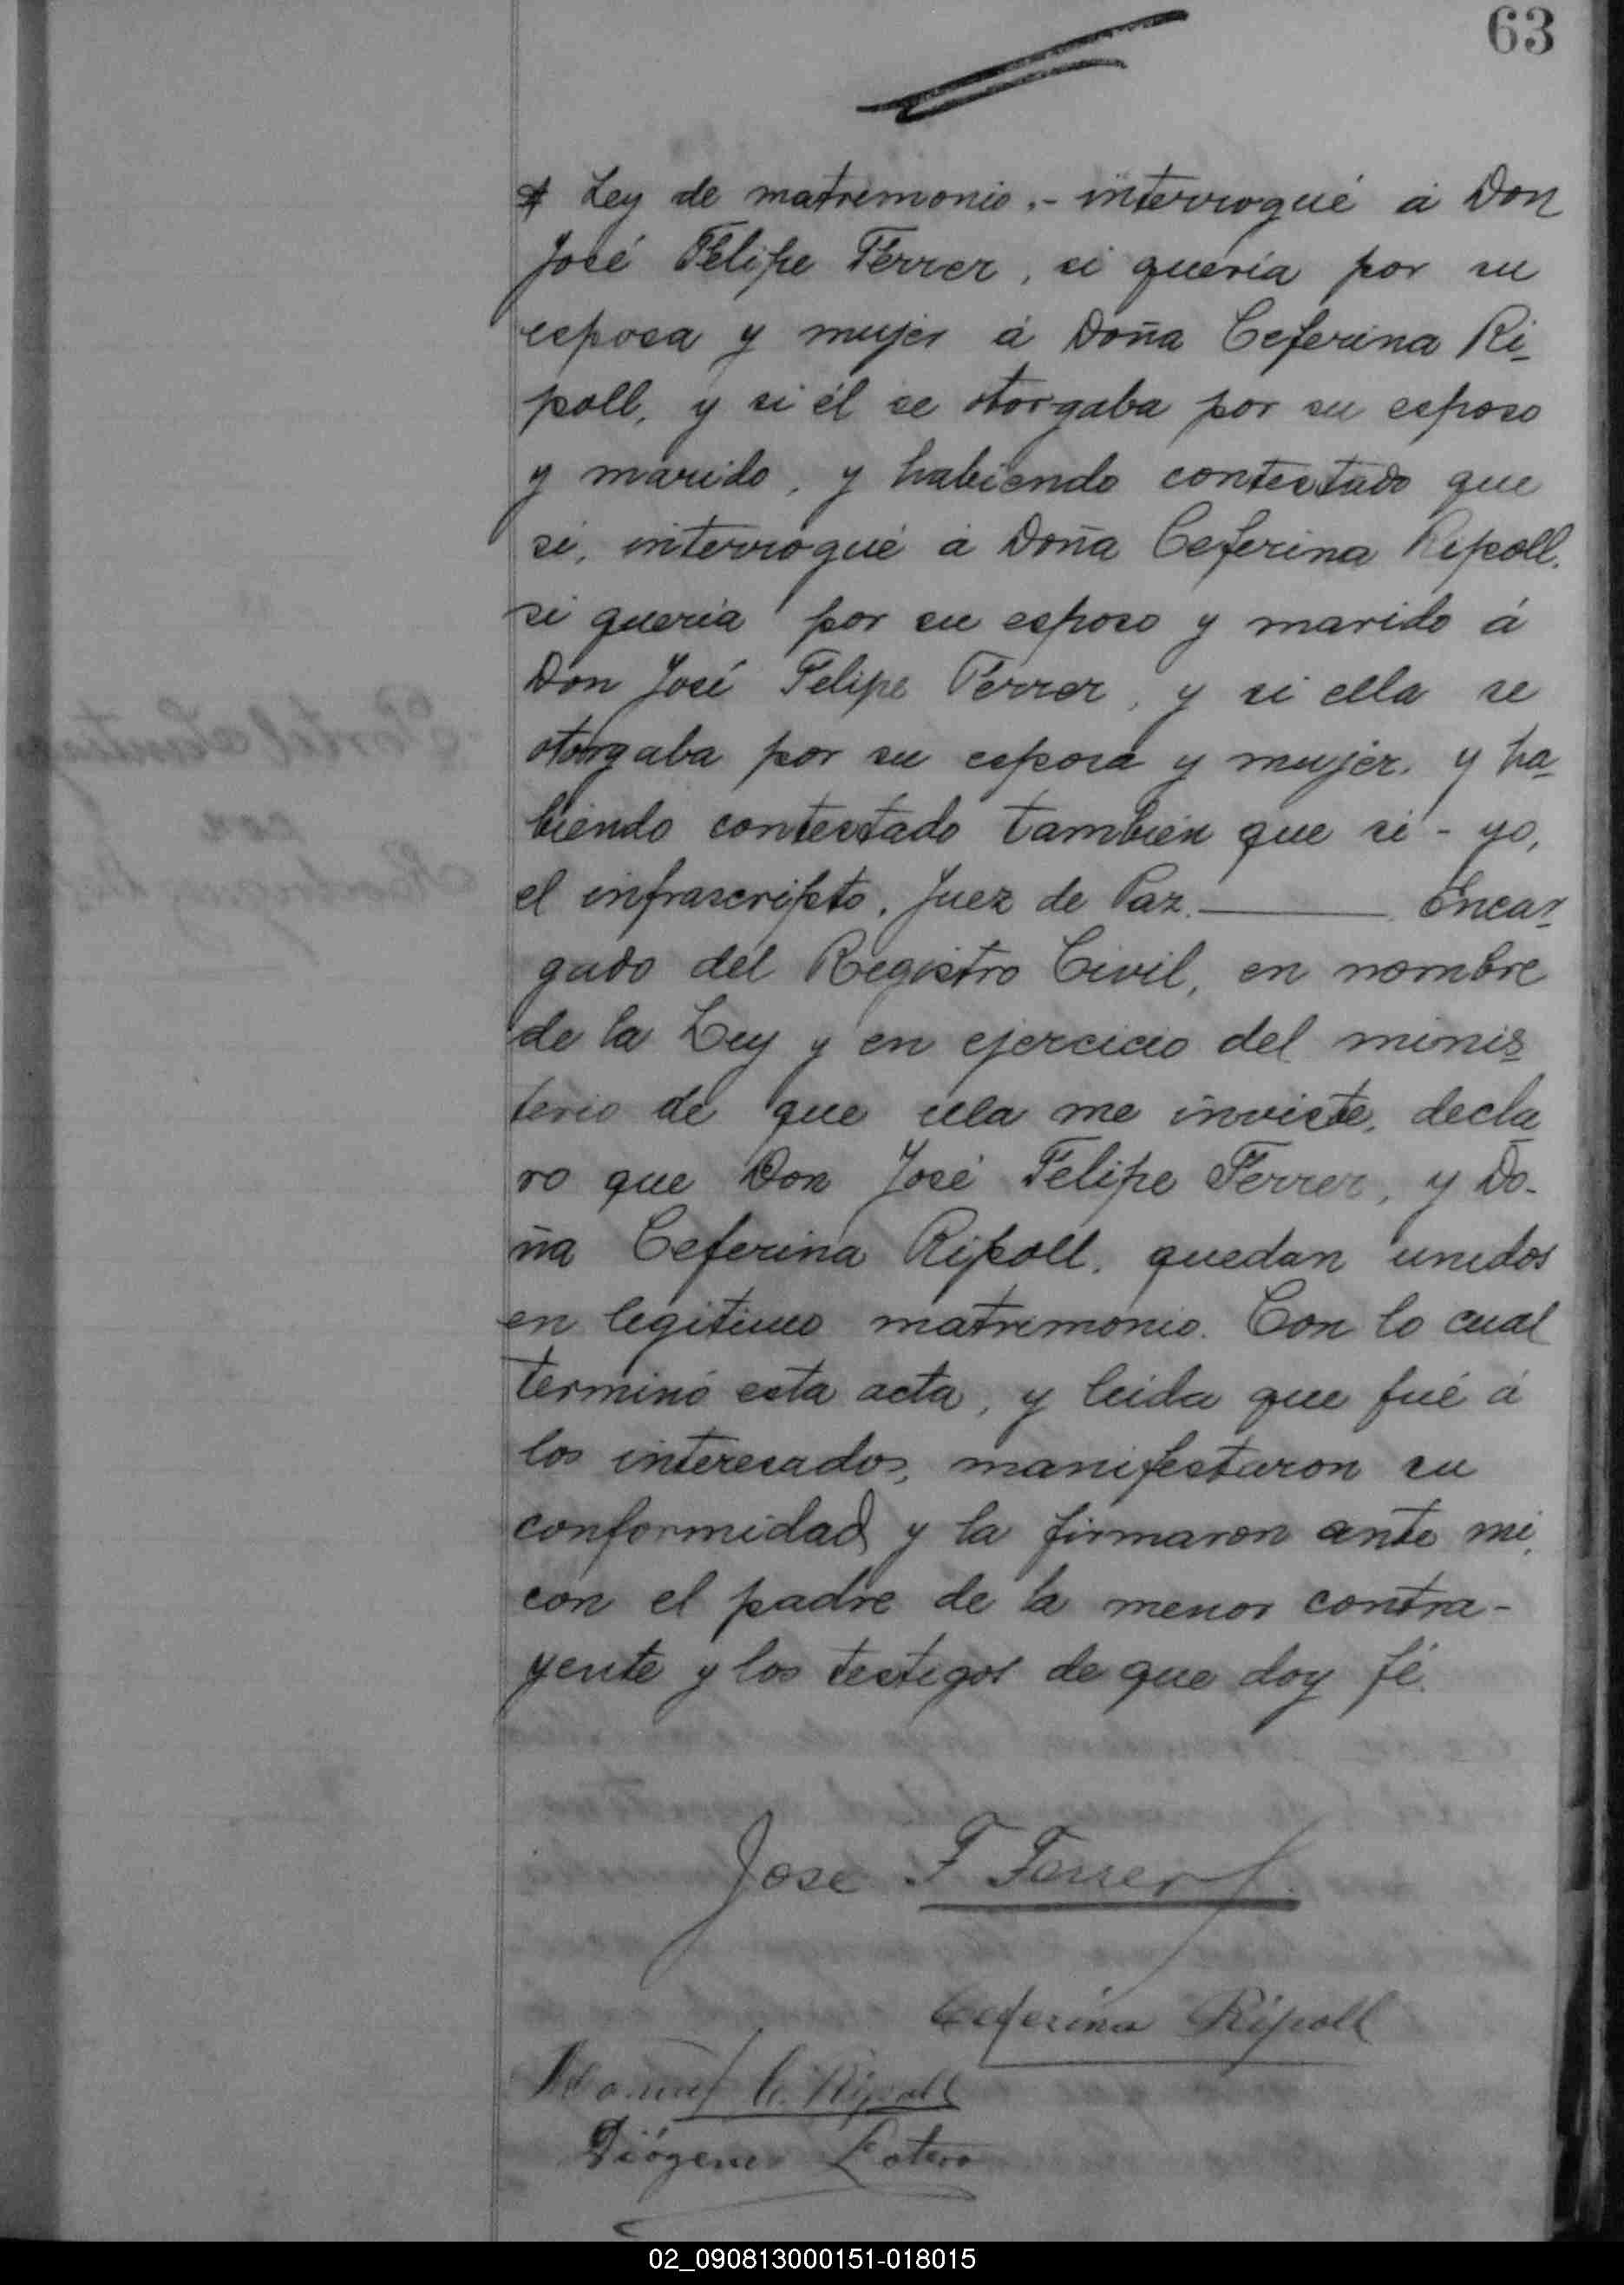 63
Ley de matremonio.- interrogué á Don
José Felipe Ferrer, si queria por su
esposa y mujer á Doña Ceferina Ri-
poll, y si él se otorgaba por su esposo
y marido, y habiendo contestado que
si, interrogué á Doña Ceferina Ripoll,
si queria por su esposo y marido á
Don José Felipe Ferrer, y si ella se
otorgaba por su esposa y mujer, y ha-
biendo contestado tambien que si - yo,
el infrascripto, Juez de Paz. ——— Encar-
gado del Registro Civil, en nombre
de la Ley y en ejercicio del minis-
terio de que ella me inviste, decla
ro que Don José Felipe Ferrer, y Do-
ña Ceferina Ripoll, quedan unidos
en legitimo matrimonio. Con lo cual
terminó esta acta, y leida que fué á
los interesados, manifestaron su
conformidad y la firmaron ante mi,
con el padre de la menor contra-
yente y los testigos de que doy fé.
Jose F Ferrer
Ceferina Ripoll
Manuel C. Ripoll
Diógenes
02_090813000151-018015